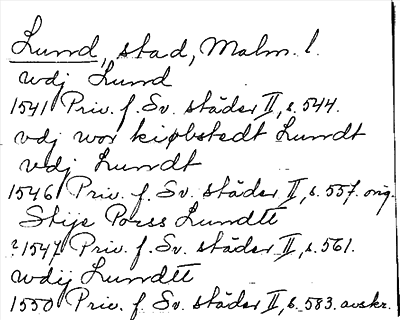 Lund, stad, Malm. l.
wdj Lund
1541 Priv. f. Sv. städer II, s. 544.
vdj wor kiøbstedt Lundt
vdj Lundt
1546 Priv. f. Sv. städer II, s. 557. orig.
Stijs Porss Lundtt
?1547 Priv. f. Sv. städer II, s. 561.
wdij Lundtt
1550 Priv. f. Sv. städer II, s. 583. avskr.